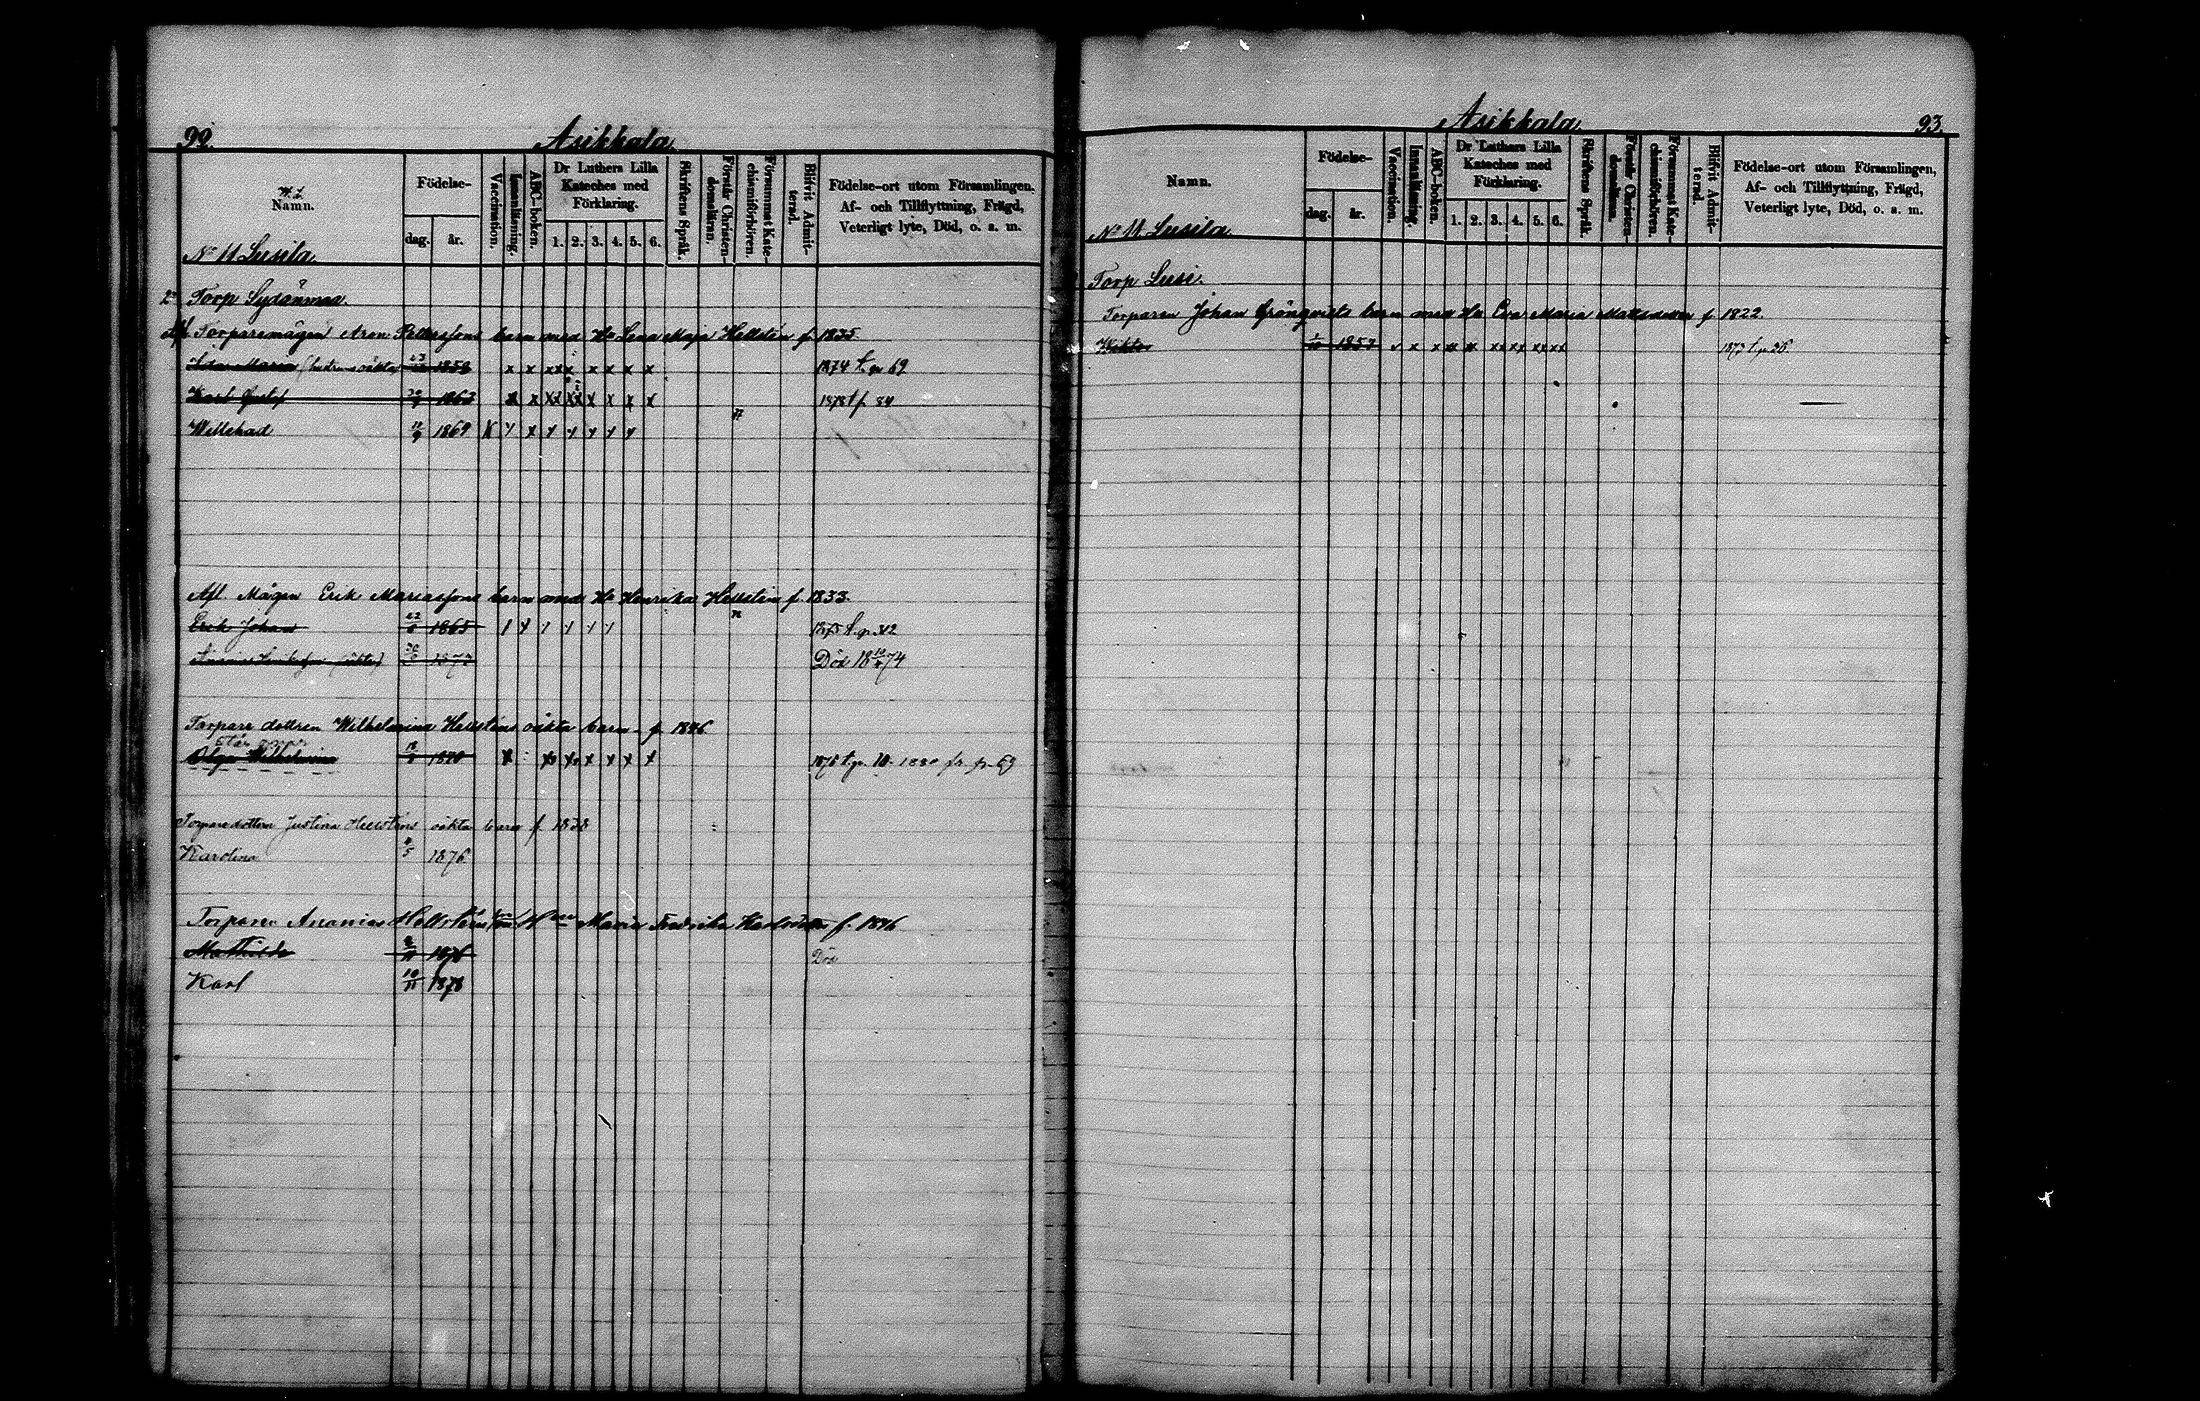 92. Asikkala
Namn. Födelse- dag. år. Vaccination. Innanläsning. ABC-boken. Dr Luthers Lilla Kateches med Förklaring. 1. 2. 3. 4. 5. 6. Skriftens Språk. Förstår Christendomsläran. Försummat Katechismiförhören. Blifvit Admitterad. Födelse-ort utom Församlingen, Af- och Tillflyttning, Frägd, Veterligt lyte, Död, o. s. m.
No 11 Lusila
Torp Sydänmaa
Torparemågen Aron Pettersons barn med Ho Lena Maja Hellstén f. 1835.
Maria 1858 x x x x x x x x x 1874 t. p 69
Karl Gustaf 1863 x x xx xx x x x x 1878 t p. 84
Willehad 11/9 1869 x x x x x x x x
Afl. Mågen Erik Mariassons barn med Ho Henrika Hellstén f. 1833.
Erik Johan 1865 1875 t. p. 312
1873 Död 18 74
Torpare dottren Wilhelmina Hellsténs oäkta barn f. 1846
Olga Wilhelmina 1870 x x x x x x 1875 t. p. 10. 1880 fr. p. 69
Torparedottren Justina Hellsténs oäkta barn f. 1838
Karolina 1876
Torparen Ananias Hellsténs barn Maria Fredrika Karlsdotter f. 1846
Mathilda 1876 Död
Karl 10/11 1878
Asikkala 93.
Namn. Födelse- dag. år. Vaccination. Innanläsning. ABC-boken. Dr Luthers Lilla Kateches med Förklaring. 1. 2. 3. 4. 5. 6. Skriftens Språk. Förstår Christendomsläran. Försummat Katechismiförhören. Blifvit Admitterad. Födelse-ort utom Församlingen, Af- och Tillflyttning, Frägd, Veterligt lyte, Död, o. s. m.
No 11 Lusila
Torp Lusi.
Torparen Johan Grönqvists barn med Ho Eva Maria Mattsdotter f. 1822.
Wiktor 1857 x x x xx xx xx xx xx xx 1873 t. p. 26